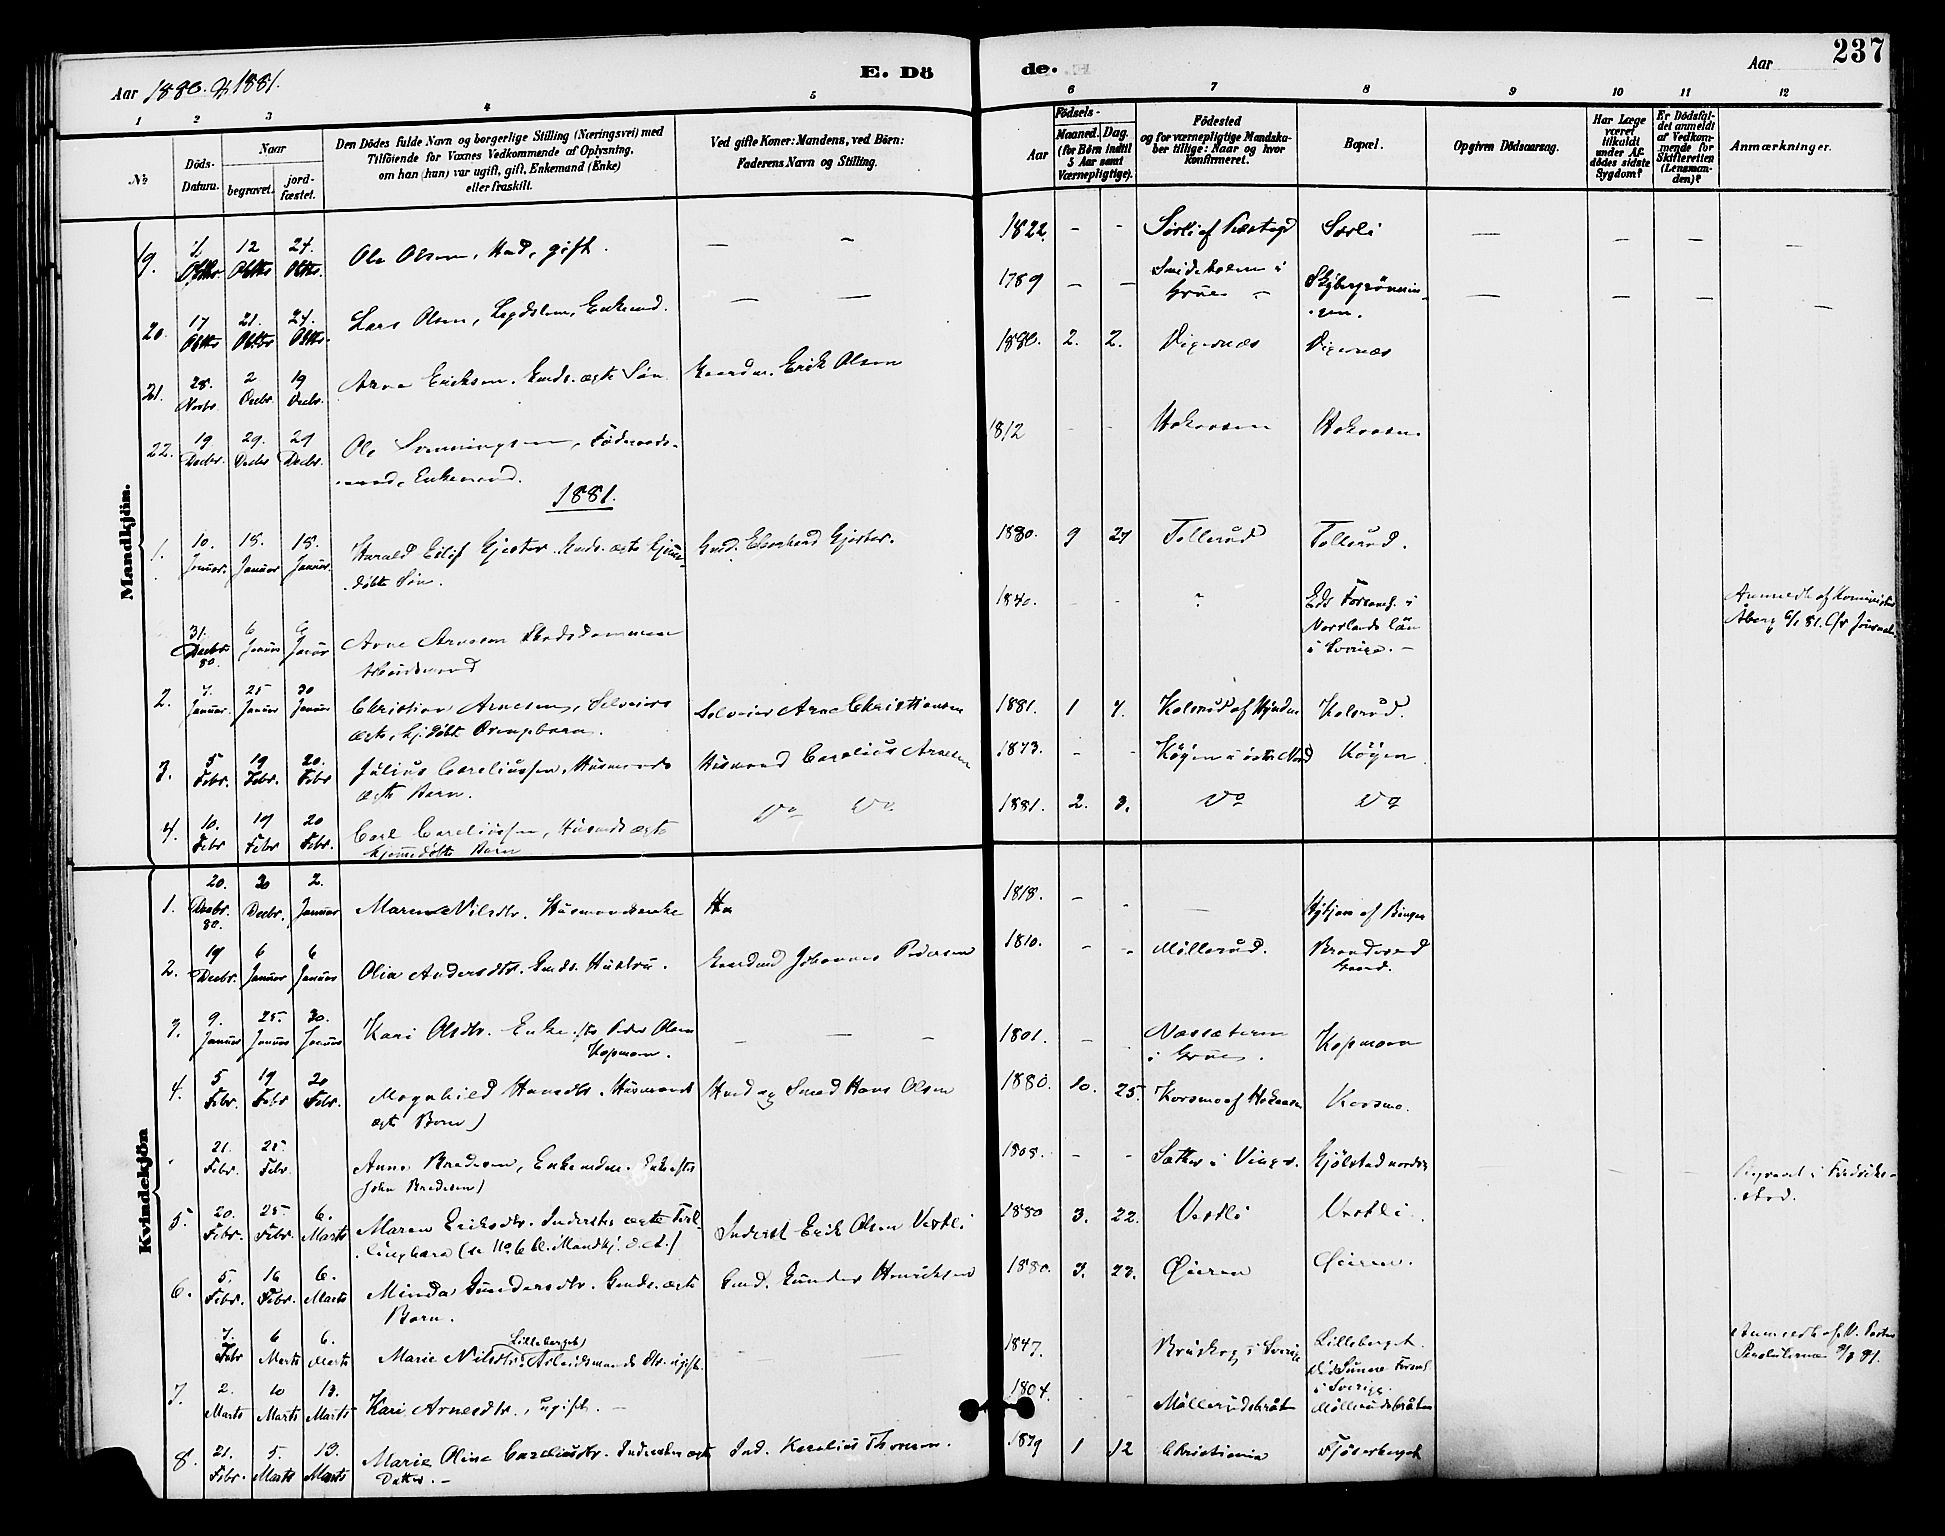 Aar 1880. & 1881.
E. Dö
de.
Aar
237
1 2 3 4 5 6 7 8 9 10 11 12
No
Döds-
Datum.
Naar
begravet.
jord-
fæstet.
Den Dödes fulde Navn og borgerlige Stilling (Næringsvei) med
Tilföiende for Voxnes Vedkommende af Oplysning,
om han (hun) var ugift, gift, Enkemand (Enke)
eller fraskilt.
Ved gifte Koner: Mandens, ved Börn:
Faderens Navn og Stilling.
Födsels-
Aar
Maaned. Dag.
(for Börn indtil
5 Aar samt
Værnepligtige).
Födested
og for værnepligtige Mandska-
ber tillige: Naar og hvor
konfirmeret.
Bopæl.
Opgiven Dödsaarsag.
Har Læge
været
tilkaldt
under Af-
dödes sidste
Sygdom?
Er Dödsfal-
det anmeldt
af Vedkom-
mende for
Skifteretten
(Lensman-
den)?
Anmærkninger.
Mandkjön.
19. Oktbr. 12 Oktbr 24 Oktbr. Ole Olsen, gift. — — 1822. - - Sørli Sørli — — — —
20. 17 Oktbr 21. Oktbr 24. Oktbr. Lars Olsen, Enkemd. — — 1789 — — i Grue — — — —
21. 28. Novbr. 2 Decbr. 19 Decbr. Arne Eriksen. Gmds. ægte Søn Gaardm. Erik Olsen 1880. 2. 2. Digernæs Digernæs
22. 19 Decbr. 29. Decbr 29 Decbr. Ole Svenningsen, Føderaads-
mand, Enkemand. 1812 - - Hokaasen Hokaasen
1881.
1. 10. Januar. 15. Januar 15. Januar. Harald Eilif Gjester. Gmds. ægte hjemme-
døbte Søn. Gmd. Gjester. 1880. 9 24 Tollerud Tollerud.
31. Decbr. 80 6 Januar 6 Januar Arne Arnesen
Arbeidsmand 1840. - - Eds Forsaml. i
Norrlands län
i Sverige. — Anmeldt af Komminister
Åberg Journalen
2. 7. Januar. 25 Januar 30 Januar Christian Arnesen, Selveiers
ægte, hj.døbte Drengebarn. Selveier Arne Christiansen 1881. 1 7. Kolsrud Kolsrud.
3. 5 Febr. 19 Febr. 20. Febr Julius Careliussen, Husmands
ægte Barn. Husmand Carelius Arnesen 1873. - - Køyen i østre Køyen
4. 10. Febr 19 Febr 20 Febr. Carl Careliussen, Husmds ægte
hjemmedøbte Barn Do Do 1881. 2. 3. Do Do
Kvindekjön
1. 20. Decbr. 80. 30 Decbr. 2. Januar Maren Nilsdtr. Husmandsenke 1818. - - — af Binger
2. 19 Decbr. 6 Januar 6 Januar Olia Andersdtr. Gmds. Hustru. Gaardmd Johannes Pedersen 1810. - - Møllerud. Brandvold
Grand.
3. 9. Januar 25. Januar 30. Januar Kari Olsdtr. Enke efter Peder Olsen
Kopmoen. — — — 1801. - - Næssæteren
i Grue. Kopmoen
4. 5 Febr. 19 Febr 20 Febr. Magnhild Hansdtr. Husmands
ægte Barn) Husmd og Smed Hans Olsen 1880. 10. 25. Korsmo af Hokaasen Korsmo.
21. Febr. 25 Febr. Anne Bredesen, Enke efter
John Bredesen) 1808. - - Sætter i Vinger. Gjølstad nordre Begravet i Fredrik-
stad.
5. 20. Febr. 25 Febr. 6. Marts Maren Eriksdtr. Indersts ægte Tvil-
lingbarn (se No 6 bl. Mandkj. d. A.) Inderst Erik Olsen Vestli 1880 3. 22. Vestli Vestli.
6. 5. Febr. 16 Febr. 6. Marts Minda Gundersdtr. Gmds. ægte
Barn. Gmd. Gunder Henriksen 1880. 3. 23. Øieren Øieren.
7. Febr 6 Marts 6. Marts Marie Nilsdtr. (Lilleberget) Arbeidsmands Dtr. ugift. 1847. i Sverige Lilleberget.
Sunne Forsaml.
i Sverige. Anmeldt af V. Pastor
81.
7. 2. Marts 10 Marts 13. Marts Kari Arnesdtr., ugift. — 1804. - - Møllerudsbråten Møllerudsbråten
8. 21. Febr. 5. Marts 13. Marts Marie Oline Careliusdtr. Indersts ægte
Datter. — Ind. Karelius Thoresen. 1879 1 12 Christiania Fjøserberget